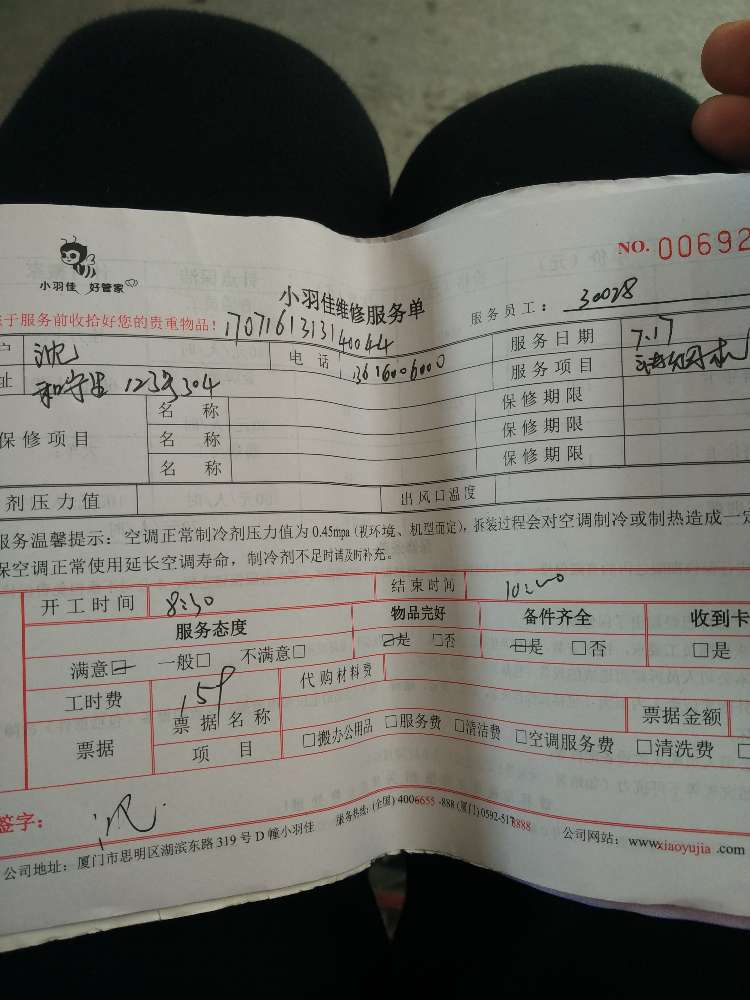 小羽佳 好管家
NO. 00692
小羽佳维修服务单
服务员工: 30028
于服务前收拾好您的贵重物品!
170716131340044
户 沈 电话 13616006000 服务日期 7.17
址 123号304 服务项目 清洗
保修项目 名称 保修期限
名称 保修期限
名称 保修期限
剂压力值 出风口温度
服务温馨提示: 空调正常制冷剂压力值为 0.45mpa (视环境、机型而定), 拆装过程会对空调制冷或制热造成一定
保空调正常使用延长空调寿命, 制冷剂不足时请及时补充。
开工时间 8:30 结束时间 10:00
服务态度 物品完好 备件齐全 收到卡
满意☑ 一般□ 不满意□ ☑是 □否 ☑是 □否 □是
工时费 159 代购材料费
票据 票据名称 票据金额
项目 □搬办公用品 □服务费 □清洁费 □空调服务费 □清洗费
签字: 沈
公司地址: 厦门市思明区湖滨东路 319 号 D 幢小羽佳 服务热线: (全国) 4006655-888 (厦门) 0592-5178888 公司网站: www.xiaoyujia.com